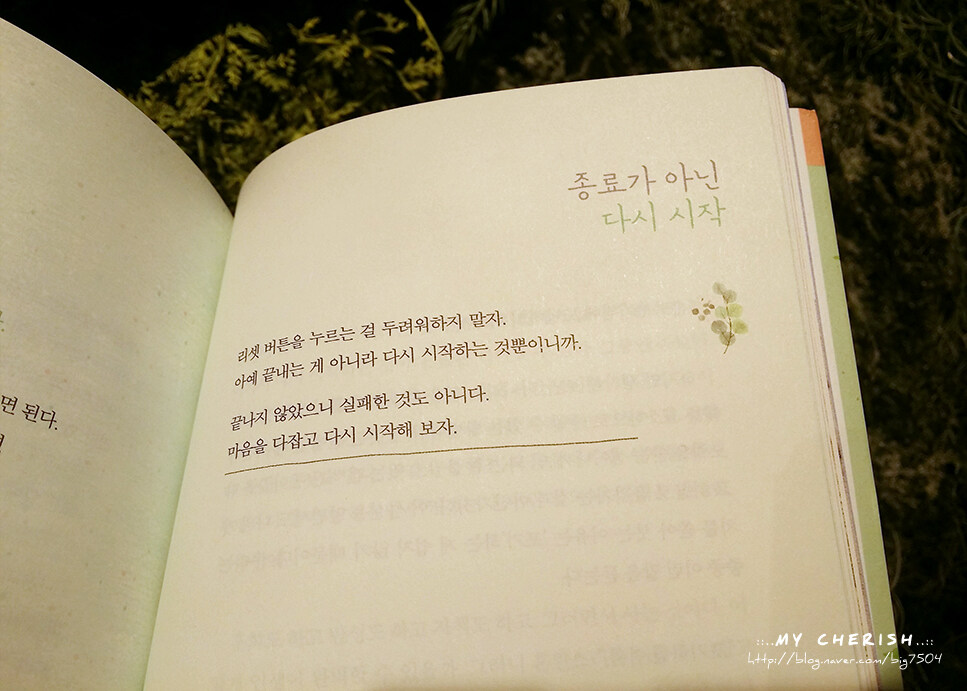 면 된다.
종료가 아닌
다시 시작
리셋 버튼을 누르는 걸 두려워하지 말자.
아예 끝내는 게 아니라 다시 시작하는 것뿐이니까.
끝나지 않았으니 실패한 것도 아니다.
마음을 다잡고 다시 시작해 보자.
::..MY CHERISH..::
http://blog.naver.com/big7504